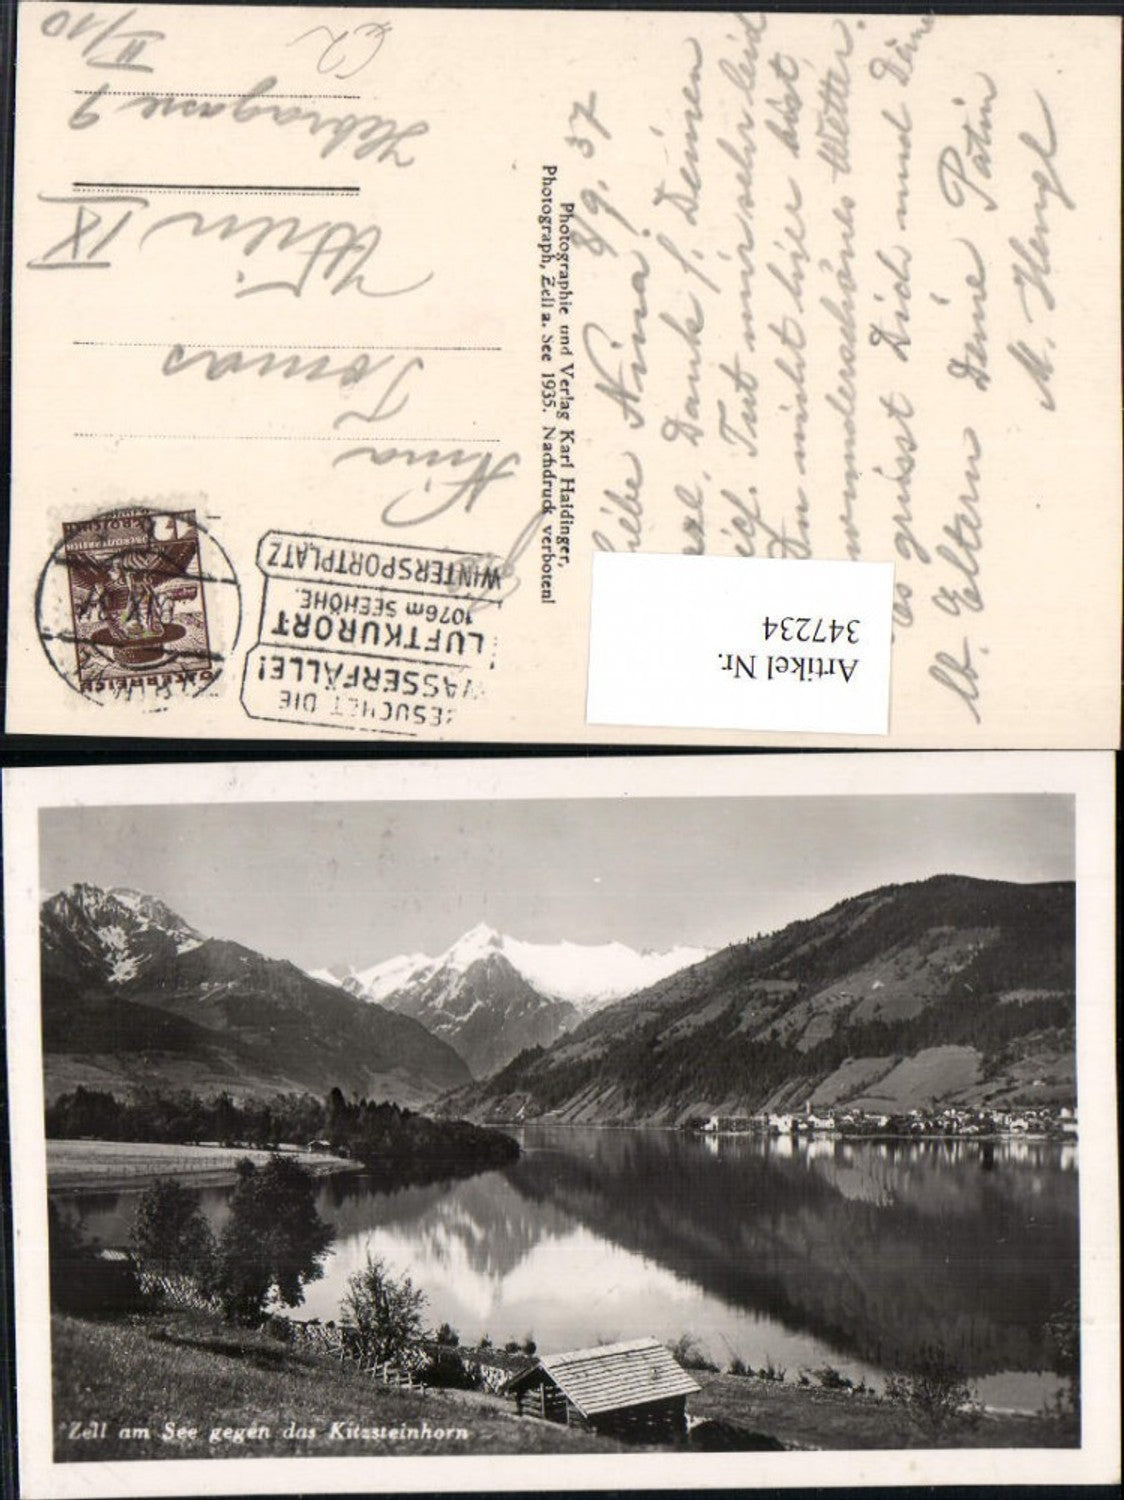 BESUCHET DIE
WASSERFÄLLE!
LUFTKURORT
1076m SEEHÖHE.
WINTERSPORTPLATZ
ÖSTERREICH
Nina
Tomas
Wien IX
Hebragasse 9
II/10
Photographie und Verlag Karl Haidinger,
Photograph, Zell a. See 1935. Nachdruck verboten!
8/9. 37
Liebe Nina!
Dank f. Deinen
Tut mir sehr leid
Du nicht hier bist,
wunderschönes Wetter.
Es grüsst Dich und Deine
lb. Eltern Deine Patin
M. Hengl
Artikel Nr.
347234
Zell am See gegen das Kitzsteinhorn